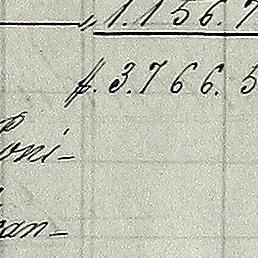 „ 1.156.7
f. 3.766.5
oni-
an-